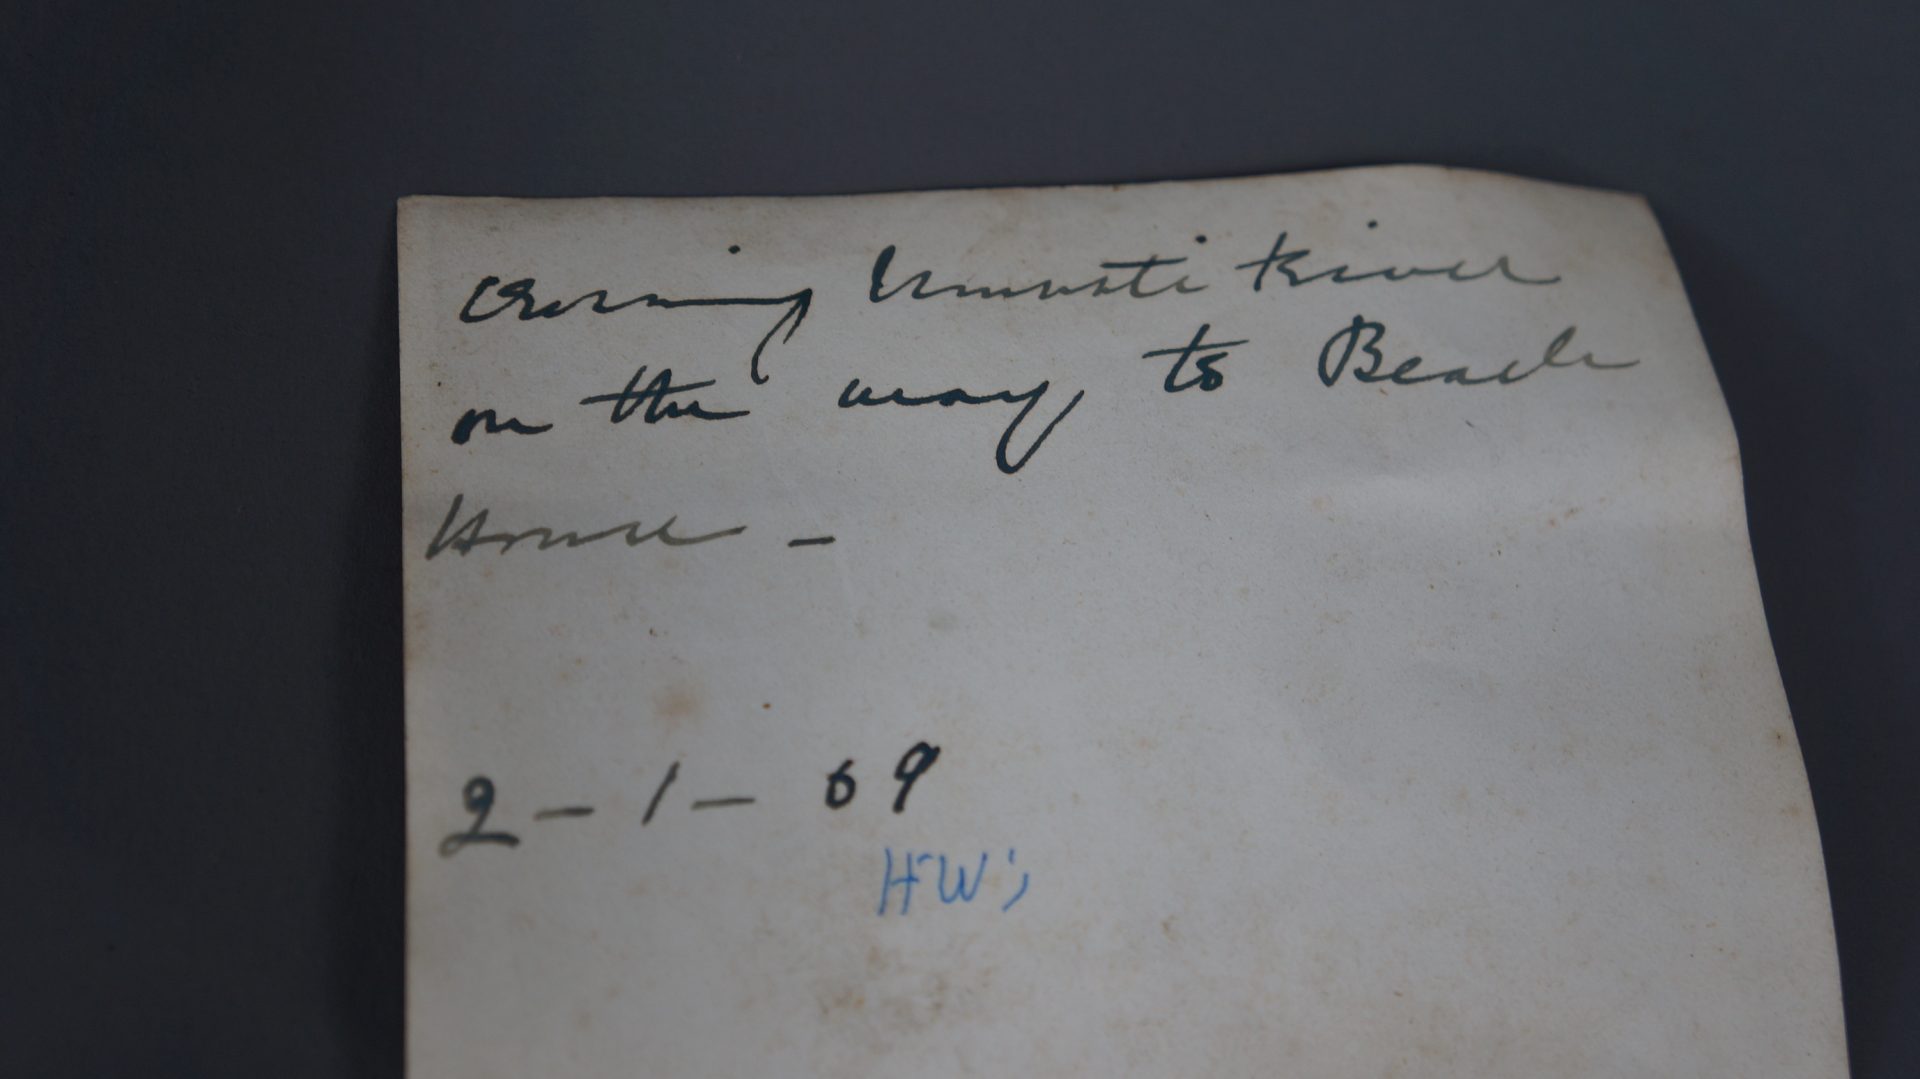 Crossing Umvoti River
on the way to Beach
House -
2 - 1 - 69
HW